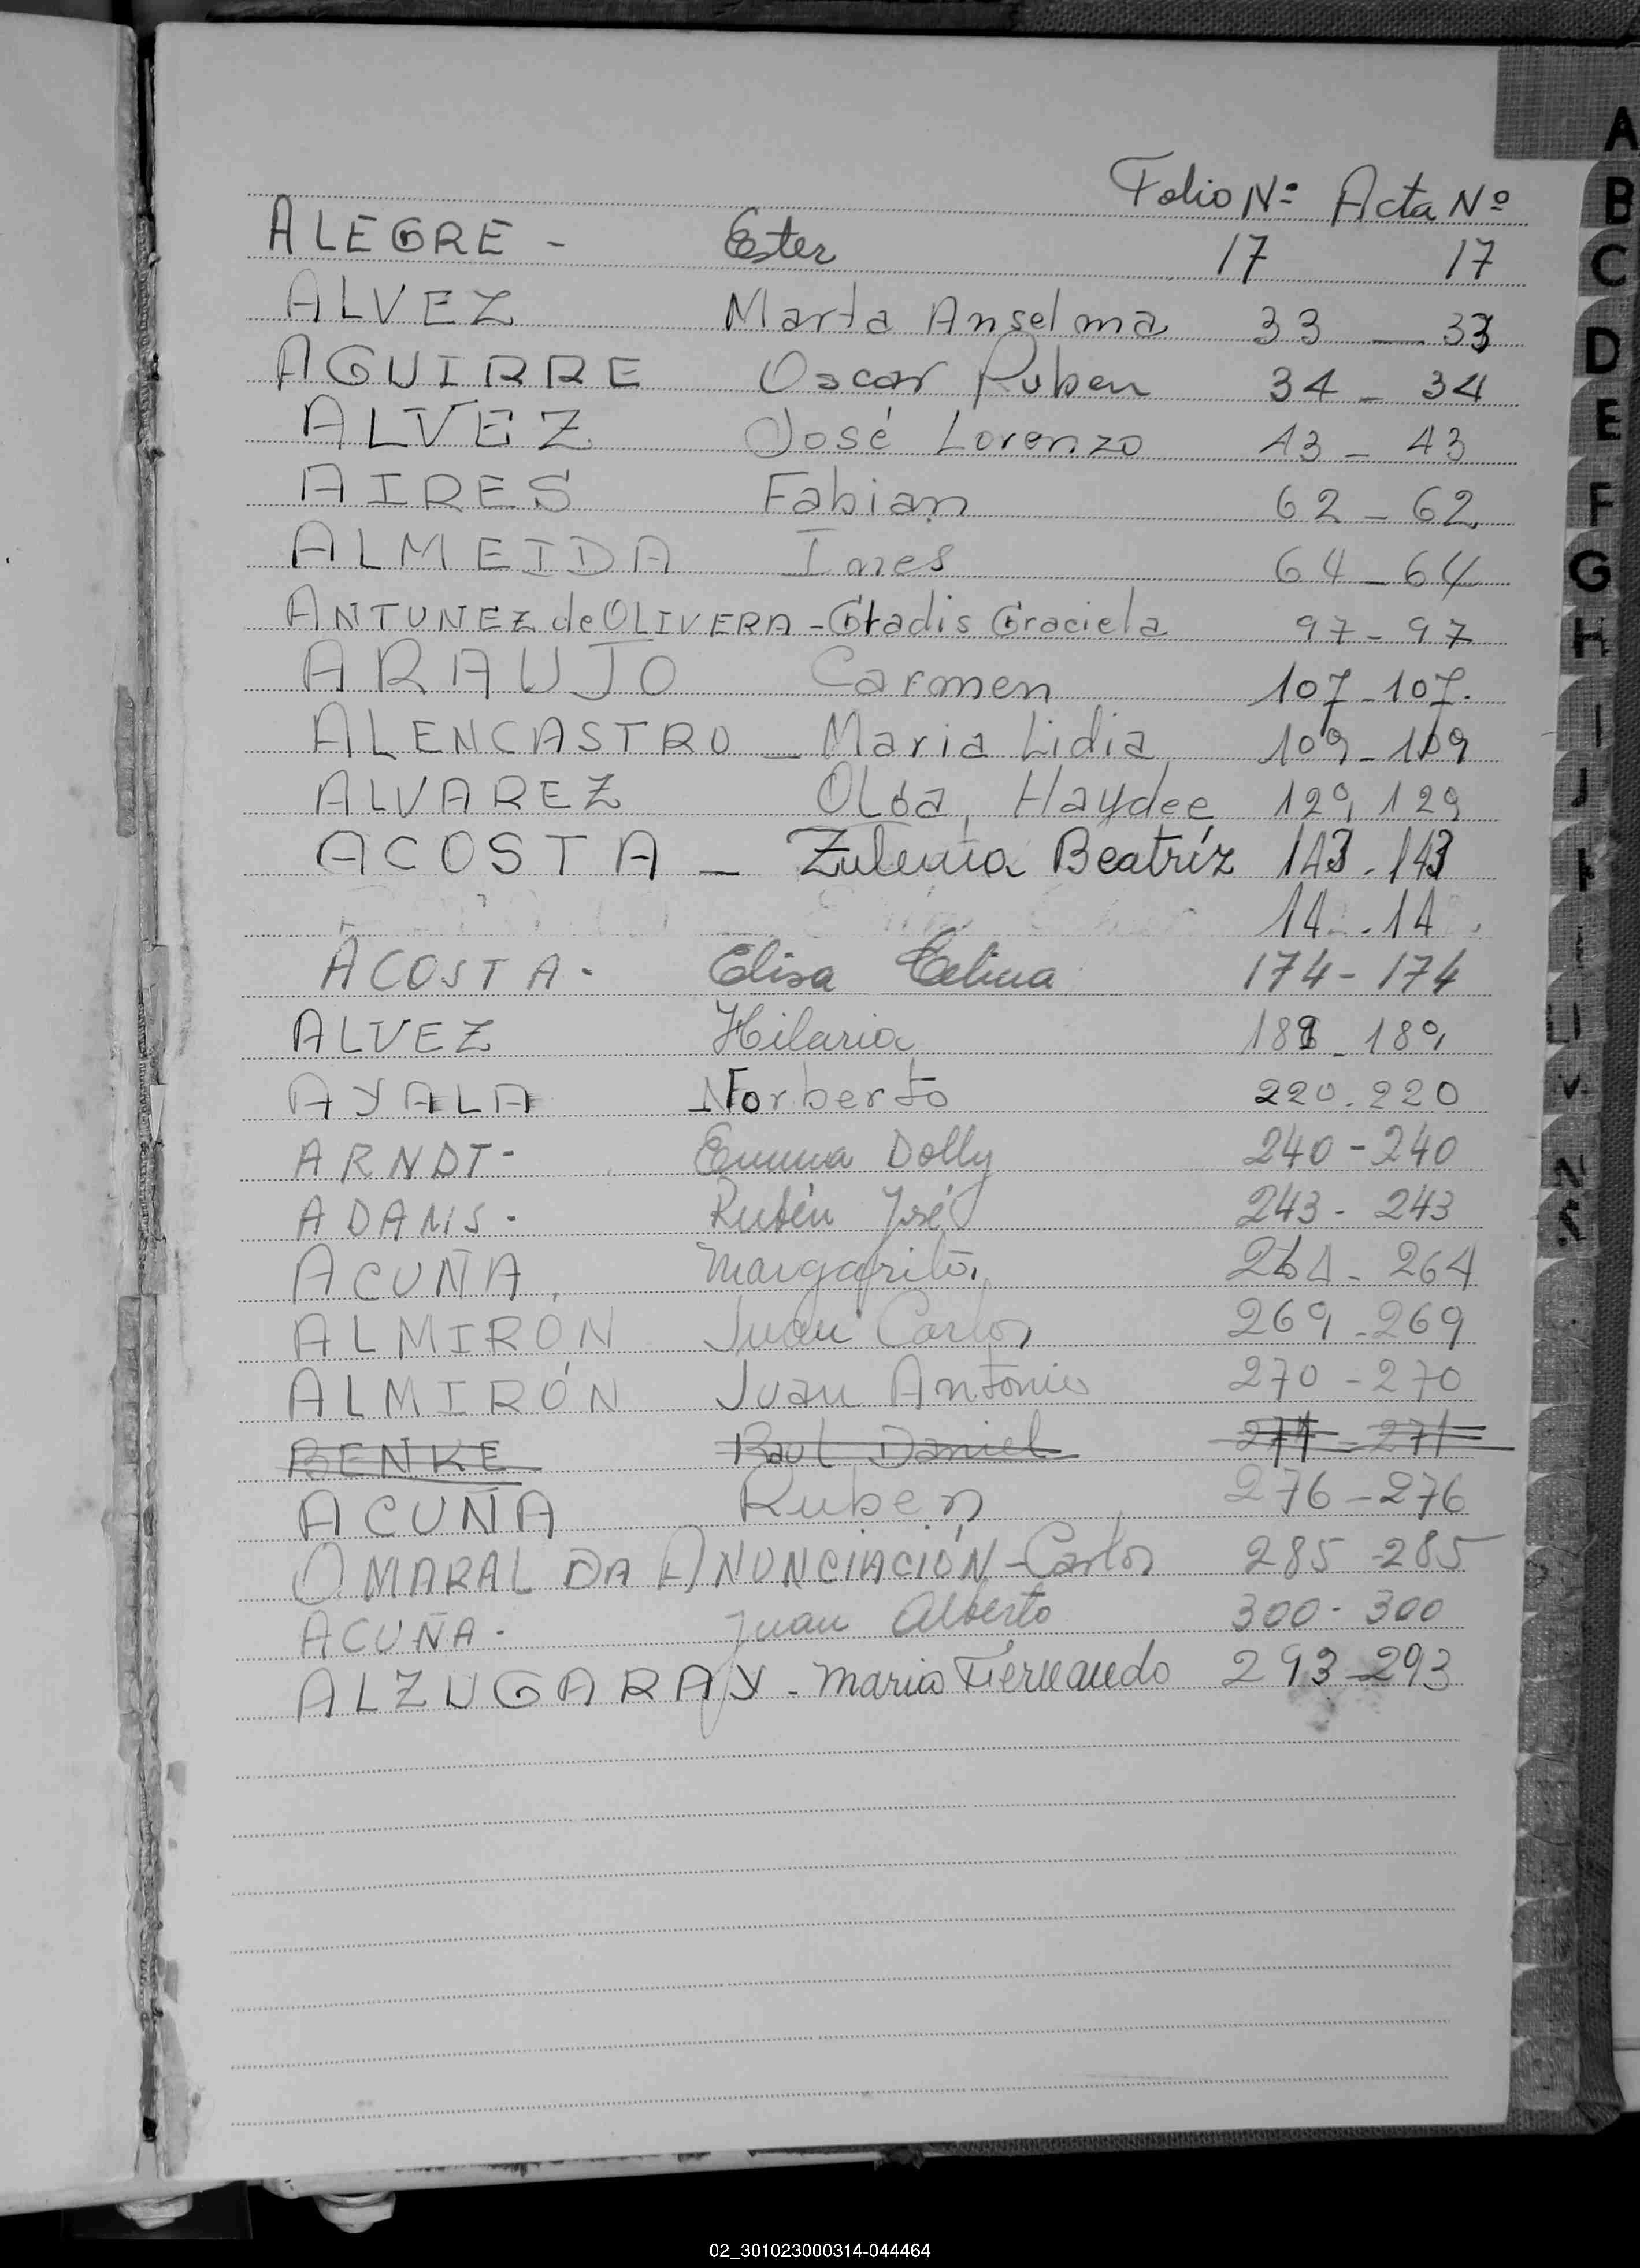 Folio Nº Acta Nº
ALEGRE - Ester 17 17
ALVEZ Marta Anselma 33 — 33
AGUIRRE Oscar Ruben 34 - 34
ALVEZ José Lorenzo 43 - 43
AIRES Fabian 62 - 62
ALMEIDA Ines 64 - 64
ANTUNEZ de OLIVERA - Gladis Graciela 97 - 97
ARAUJO Carmen 107 - 107.
ALENCASTRO - Maria Lidia 109 - 109
ALVAREZ Olga, Haydee 129, 129
ACOSTA - Zulema Beatríz 143 - 143
14 - 14
ACOSTA - Elisa Celina 174 - 174
ALVEZ Hilaria 189 - 189
AYALA Norberto 220 - 220
ARNDT - Emma Dolly 240 - 240
ADAMS - Rubén José 243 - 243
ACUÑA Margarita 264 - 264
ALMIRÓN Juan Carlos 269 - 269
ALMIRÓN Juan Antonio 270 - 270
BENKE Raul Daniel 271 - 271
ACUÑA Ruben 276 - 276
AMARAL DA ANUNCIACIÓN - Carlos 285 - 285
ACUÑA - Juan Alberto 300 - 300
ALZUGARAY - Maria Fernando 293 - 293
A
B
C
D
E
F
G
H
I
J
02_301023000314-044464